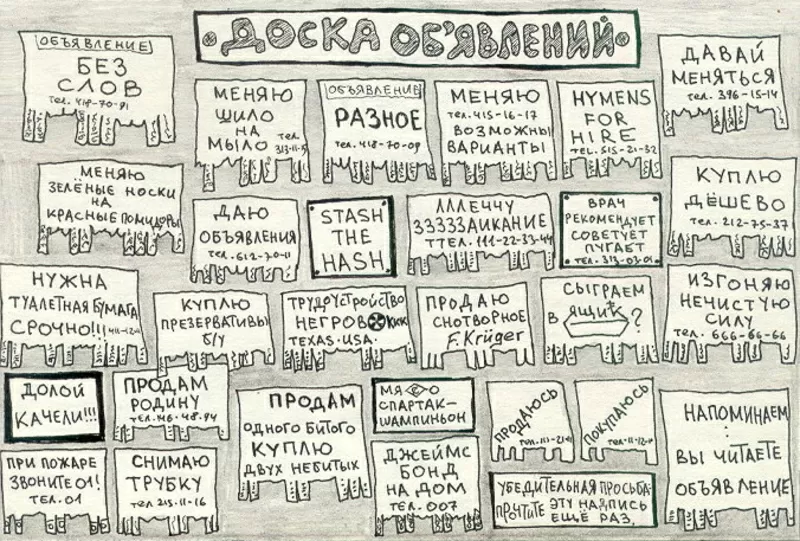 ДОСКА ОБЪЯВЛЕНИЙ
ОБЪЯВЛЕНИЕ
БЕЗ
СЛОВ
тел. 418-70-91
МЕНЯЮ
ШИЛО
НА
МЫЛО тел.
313-11-5
ОБЪЯВЛЕНИЕ
РАЗНОЕ
тел. 418-70-09
МЕНЯЮ
тел. 415-16-17
ВОЗМОЖНЫ
ВАРИАНТЫ
HYMENS
FOR
HIRE
TEL. 515-21-32
ДАВАЙ
МЕНЯТЬСЯ
тел. 396-15-14
МЕНЯЮ
ЗЕЛЁНЫЕ НОСКИ
НА
КРАСНЫЕ ПОМИДОРЫ
ДАЮ
ОБЪЯВЛЕНИЯ
тел. 612-70-11
STASH
THE
HASH
ЛЛЕЧЧУ
ЗЗЗЗЗАИКАНИЕ
ТТЕЛ. 111-22-33-44
ВРАЧ
РЕКОМЕНДУЕТ
СОВЕТУЕТ
ПУГАЕТ
тел. 313-03-01
КУПЛЮ
ДЁШЕВО
тел. 212-75-37
НУЖНА
ТУАЛЕТНАЯ БУМАГА
СРОЧНО!!! 411-12-11
КУПЛЮ
ПРЕЗЕРВАТИВЫ
Б/У
ТРУДОУСТРОЙСТВО
НЕГРОВ KKK
TEXAS. USA.
ПРОДАЮ
СНОТВОРНОЕ
F. Krüger
СЫГРАЕМ
В ЯЩИК?
ИЗГОНЯЮ
НЕЧИСТУЮ
СИЛУ
тел. 666-66-66
ДОЛОЙ
КАЧЕЛИ!!!
ПРОДАМ
РОДИНУ
тел. 46-48-94
ПРОДАМ
ОДНОГО БИТОГО
КУПЛЮ
ДВУХ НЕБИТЫХ
МЯСО
СПАРТАК-
ШАМПИНЬОН
ПРОДАЮСЬ
ПОКУПАЮСЬ
НАПОМИНАЕМ:
ВЫ ЧИТАЕТЕ
ОБЪЯВЛЕНИЕ
ПРИ ПОЖАРЕ
ЗВОНИТЕ 01!
ТЕЛ. 01
СНИМАЮ
ТРУБКУ
тел 215-11-16
ДЖЕЙМС
БОНД
НА ДОМ
ТЕЛ. 007
УБЕДИТЕЛЬНАЯ ПРОСЬБА:
ПРОЧТИТЕ ЭТУ НАДПИСЬ
ЕЩЁ РАЗ.